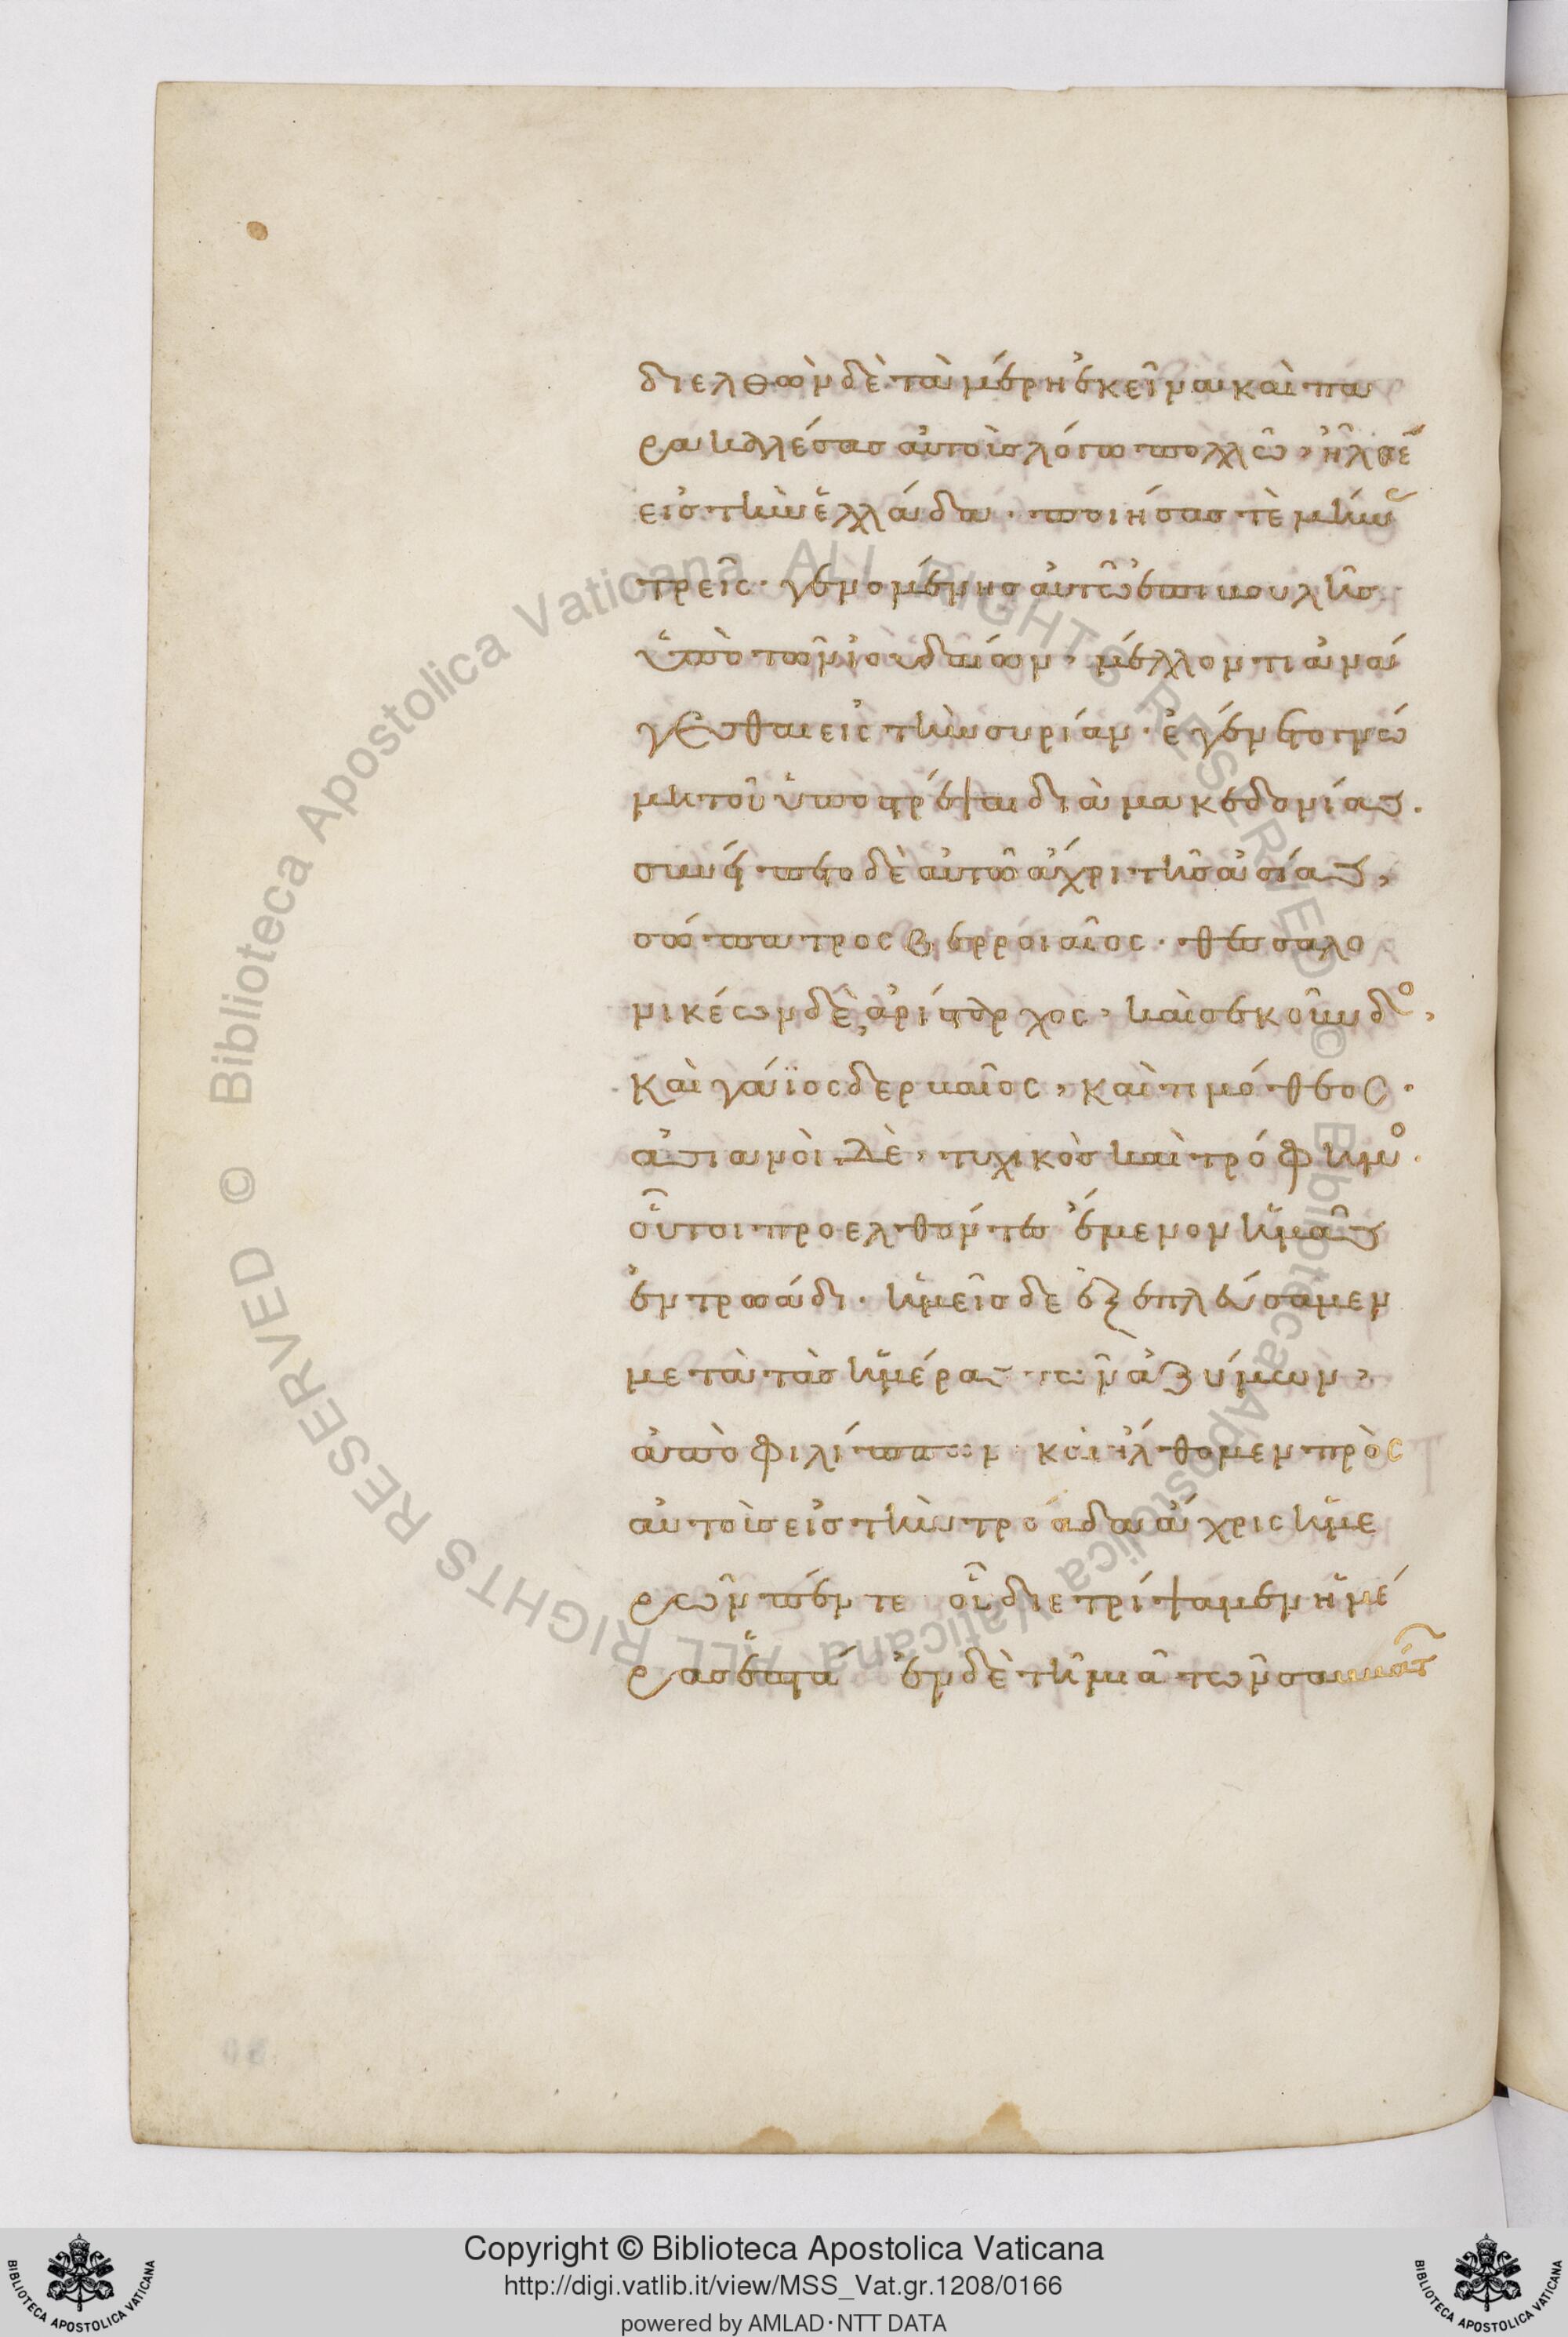 διελθὼν δὲ τὰ μέρη ἐκεῖνα καὶ πα
ρακαλέσας αὐτοὺς λόγω πολλῶ, ἦλθεν
εἰς τὴν ἑλλάδα· ποιήσας τὲ μῆνας
τρεῖς· γενομένης αὐτῶ ἐπιβουλῆς
ὑπὸ τῶν ἰουδαίων, μέλλοντι ἀνά
γεσθαι εἰς τὴν συρίαν· ἐγένετο γνώ
μη τοῦ ὑποστρέψαι διὰ μακεδονίας.
συνείπετο δὲ αὐτῶ ἄχρι τῆς ἀσίας,
σώπατρος βερροιαῖος· θεσσαλο
νικέων δὲ, ἀρίσταρχος, καὶ σεκοῦνδος,
καὶ γάϊος δερβαῖος, καὶ τιμόθεος·
ἀσιανοὶ δὲ, τυχικὸς καὶ τρόφιμος·
οὗτοι προελθόντες ἔμενον ἡμᾶς
ἐν τρωάδι· ἡμεῖς δὲ ἐξεπλεύσαμεν
μετὰ τὰς ἡμέρας τῶν ἀζύμων,
ἀπὸ φιλίππων καὶ ἤλθομεν πρὸς
αὐτοὺς εἰς τὴν τρωάδα ἄχρις ἡμε
ρῶν πέντε οὗ διετρίψαμεν ἡμέ
ρας ἑπτά ἐν δὲ τῆ μιᾶ τῶν σαββάτων
Biblioteca Apostolica Vaticana ALL RIGHTS RESERVED © Biblioteca Apostolica Vaticana ALL RIGHTS RESERVED ©
Copyright © Biblioteca Apostolica Vaticana
http://digi.vatlib.it/view/MSS_Vat.gr.1208/0166
powered by AMLAD·NTT DATA
BIBLIOTECA APOSTOLICA VATICANA
BIBLIOTECA APOSTOLICA VATICANA